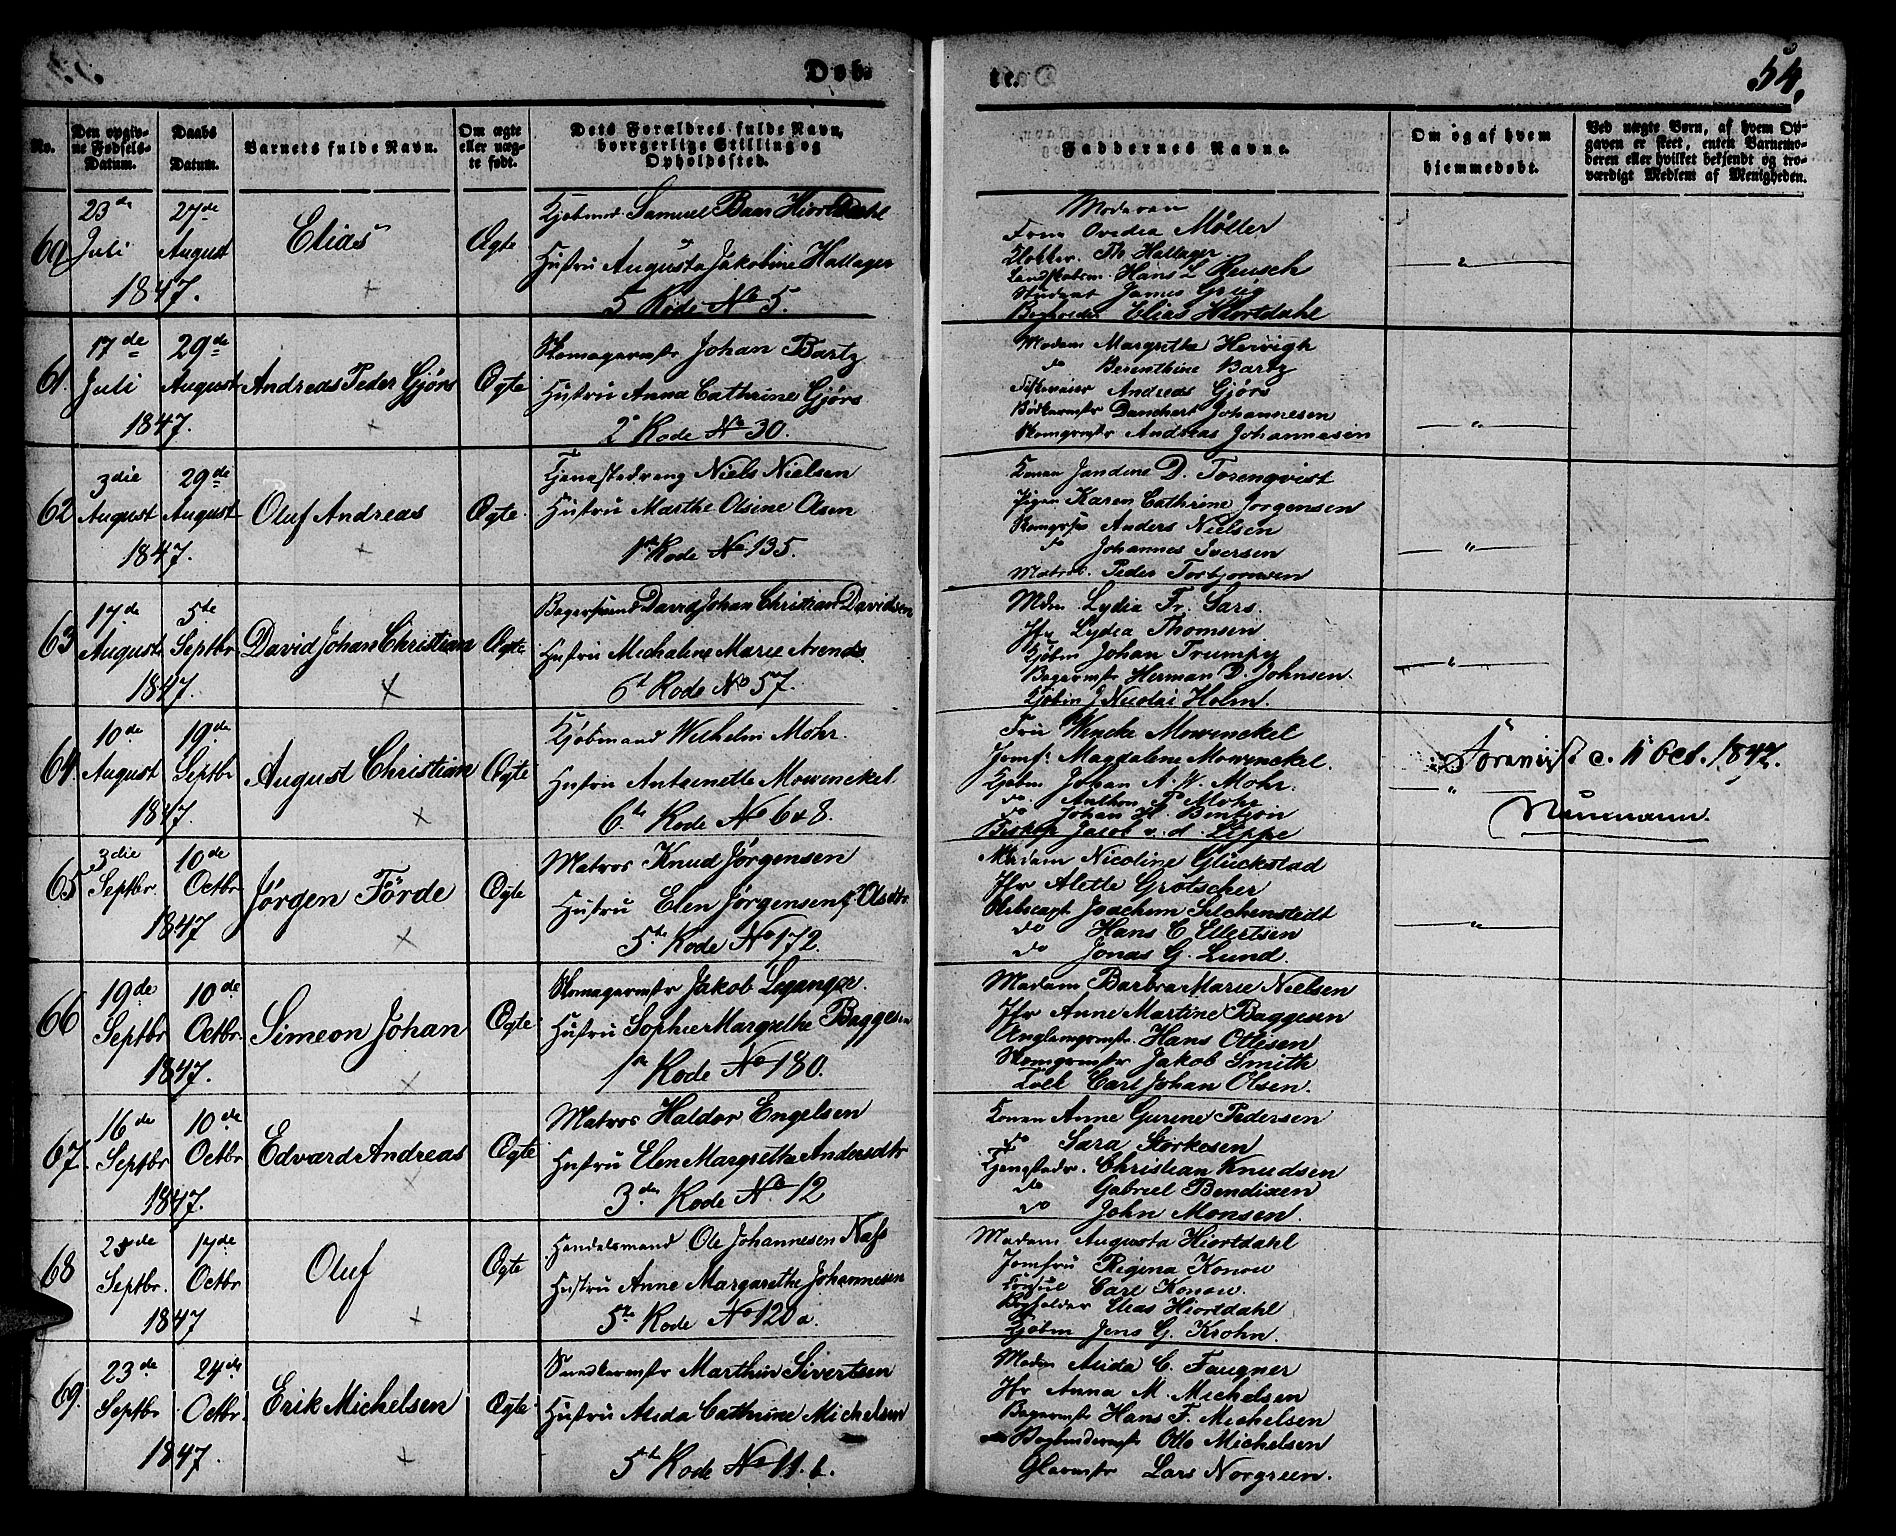 Døb-
te.
54.
No.
Den opgiv-
ne Fødsels-
Datum.
Daabs
Datum.
Barnets fulde Navn.
Om ægte
eller uæg-
te født.
Dets Forældres fulde Navn,
borgerlige Stilling og
Opholdssted.
Faddernes Navne.
Om og af hvem
hjemmedøbt.
Ved uægte Børn, af hvem Op-
gaven er skeet, enten Barnemo-
deren eller hvilket bekjendt og tro-
værdigt Medlem af Menigheden.
60
23de Juli
27de August
1847.
Elias
Ægte
Kjøbmd Samuel Baar Hiortdahl
Hustru Augusta Jakobine Hallager
5 Rode No 5.
Madaren
Frue Ovedia Møller
Klokker Th Hallager
Landskabsm. Hans L Reusch
Student James Grieg
Elias Hiortdahl
61
17de Juli
29de August
1847.
Andreas Peder Gjørs
Ægte
Skomagermstr Johan Bartz
Hustru Anna Cathrine Gjørs
2 Rode No 30.
Madam Margretha Hervigh
do Berenthine Bartz
Andreas Gjørs
Bødkermstr Danchert Johannesen
Skomgrmstr Andreas Johannesen
62
3die August
29de August
1847.
Oluf Andreas
Ægte.
Niels Nielsen
Hustru Marthe Olsine Olsen
1ste Rode No 135.
Konen Jandine D. Torenqvist
Pigen Karen Cathrine Jørgensen
Anders Nielsen
do Johannes Iversen
Matros Peder Torbjørnsen
63
17de August
5te Septbr
1847.
David Johan Christian
Ægte
Bagersvend David Johan Christian Davidsen
Hustru Michaline Marie Arends.
6t Rode No 57.
Mdm Lydia Fr. Sars.
Jfr Lydia Thomsen.
Kjøbm Johan Trumpy
Bagermstr Herman D. Johnsen.
Kjøbm J Nicolai Holm.
64.
10de August
19de Septbr
1847.
August Christian
Ægte
Kjøbmand Wilhelm Mohr.
Hustru Antoinette Mowinckel
6te Rode No 6 & 8.
Fru Wencke Mowinckel
Jomf: Magdalene Mowinckel.
Kjøbm Johan A. W. Mohr.
do. Anthon P Mohr
do Johan H. Bentzon
Biskop Jacob v. d. Lippe
11 Oct. 1847.
Neumann.
65
3die Septbr.
10de Octbr.
1847
Jørgen Förde
Ægte
Matros Knud Jørgensen
Hustru Elen Jørgensen f. Olsdtr.
5te Rode No 172.
Madam Nicoline Glückstad
Jfr Alette Grötscher
Skibscapt Joachim Silchenstedt
do Hans C Ellertsen
do Jonas G. Lund.
66
19de Septbr
10de Octbr.
1847.
Simeon Johan
Ægte
Skomagermstr Jakob Leganger.
Hustru Sophie Margrethe Baggesen
1ste Rode No 180.
Madam Barbra Marie Nielsen
Jfr Anne Martine Baggesen
Hans Ottesen
Skomgrmstr Jakob Smith
Carl Johan Olsen.
67.
16de Septbr
10de Octbr
1847.
Edvard Andreas
Ægte
Matros Haldor Engelsen
Hustru Elen Margretha Andersdtr
3de Rode No 12
Konen Anne Gurine Pedersen
do Sara Størkesen
Christian Knudsen
do Gabriel Bendixen
do John Monsen.
68
23de Septbr.
17de Octbr
1847
Oluf
Ægte
Handelsmand Ole Johannesen Næss
Hustru Anne Margarethe Johannesen
5te Rode No 120a.
Madam Augusta Hiortdahl
Jomfru Regina Konow
Consul Carl Konow.
Bogholder Elias Hiortdahl
Kjøbm Jens G. Krohn.
69.
23de Septbr
24de Octbr.
1847.
Erik Michelsen
Ægte
Snedkermstr Marthin Sivertsen
Hustru Alida Cathrine Michelsen
5te Rode No 11. b.
Madm Alida C. Faugner
Jfr Anna M. Michelsen
Bagermstr Hans F. Michelsen
Bogbindermstr Otto Michelsen
Glarmstr Lars Norgreen.